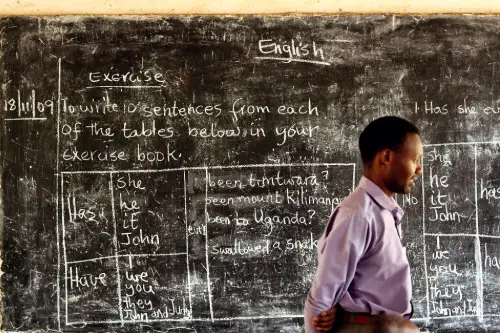 English
Exercise
18/11/09
To write 10 sentences from each
of the tables below, in your
exercise book.
Has
She
he
it
John
been to
been mount Kilimanjaro
been to Uganda?
Swallowed a snake
Have
I
we
you
they
John and Judy
1 Has she eve
She
he
it
John
No
ha
I
we
you
they
John and
ha